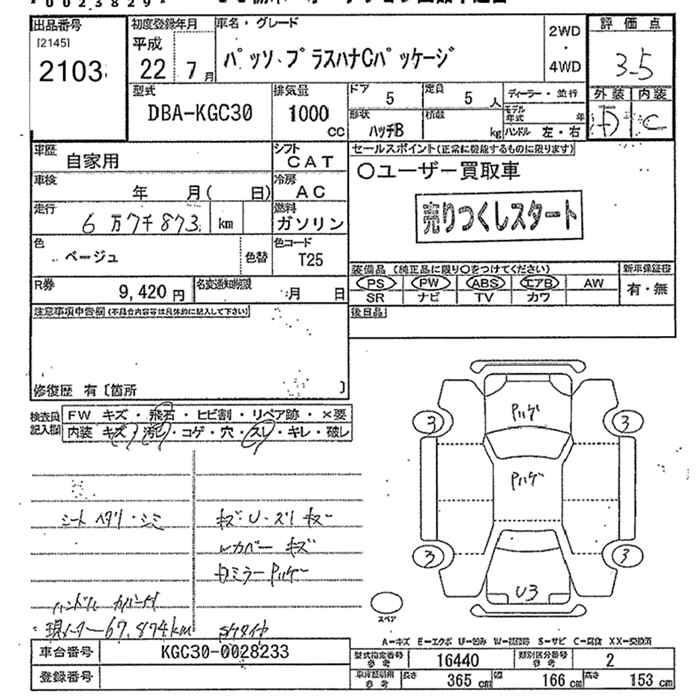 出品番号
[2145]
2103
初度登録年月
平成
22年 7月
車名・グレード
パッソ プラスハナCパッケージ
2WD
・
4WD
評価点
3.5
外装 内装
D C
型式
DBA-KGC30
排気量
1000
CC
ドア
5
定員
5人
形状
ハッチB
積載
kg
ディーラー・並行
モデル年式 年
ハンドル 左・右
車歴
自家用
シフト
CAT
車検
年 月( 日)
冷房
AC
走行
6万7千873 km
燃料
ガソリン
色
ベージュ
色替
色コード
T25
R券
9,420円
名変通知期限
月 日
セールスポイント(正常に機能するものに限ります)
○ユーザー買取車
売りつくしスタート
装備品(純正品に限り○をつけてください)
PS PW ABS エアB AW
SR ナビ TV カワ
新車保証書
有・無
後日品
注意事項申告欄(不具合内容等は具体的に記入して下さい)
修復歴 有〔箇所 〕
検査員記入欄
FW キズ・飛石・ヒビ割・リペア跡・×要
内装 キズ・汚れ・コゲ・穴・スレ・キレ・破レ
シート ヘタリ・シミ
キズ・U・スリキズ
レカバー キズ
ハンドル カバー付
現メーター67,874km
3 3
3 3
U3
スペア
A=キズ E=エクボ U=凹み W=波板跡 S=サビ C=腐食 XX=交換済
車台番号
KGC30-0028233
登録番号
型式指定番号 参考
16440
類別区分番号 参考
2
車庫証明用 参考
長さ 365 cm
幅 166 cm
高さ 153 cm